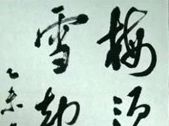 梅须
雪却
乙未